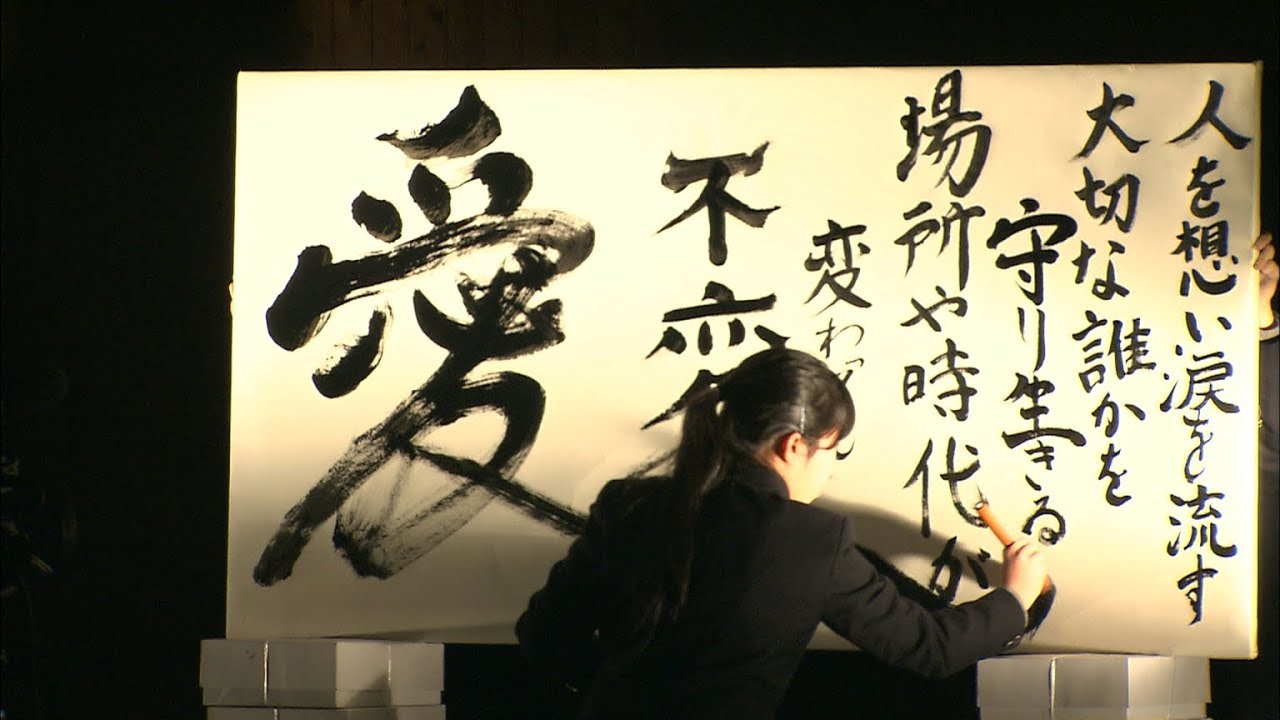 人を想い涙を流す
大切な誰かを
守り生きる
場所や時代が
変わっ
不変
愛